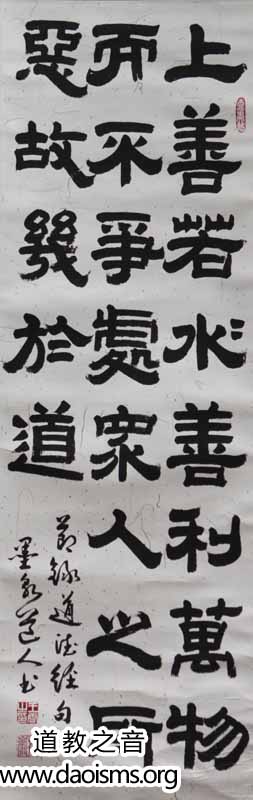 上善若水善利萬物
而不爭處眾人之所
惡故幾於道
節錄道德經句
墨道人书
道教之音
www.daoisms.org